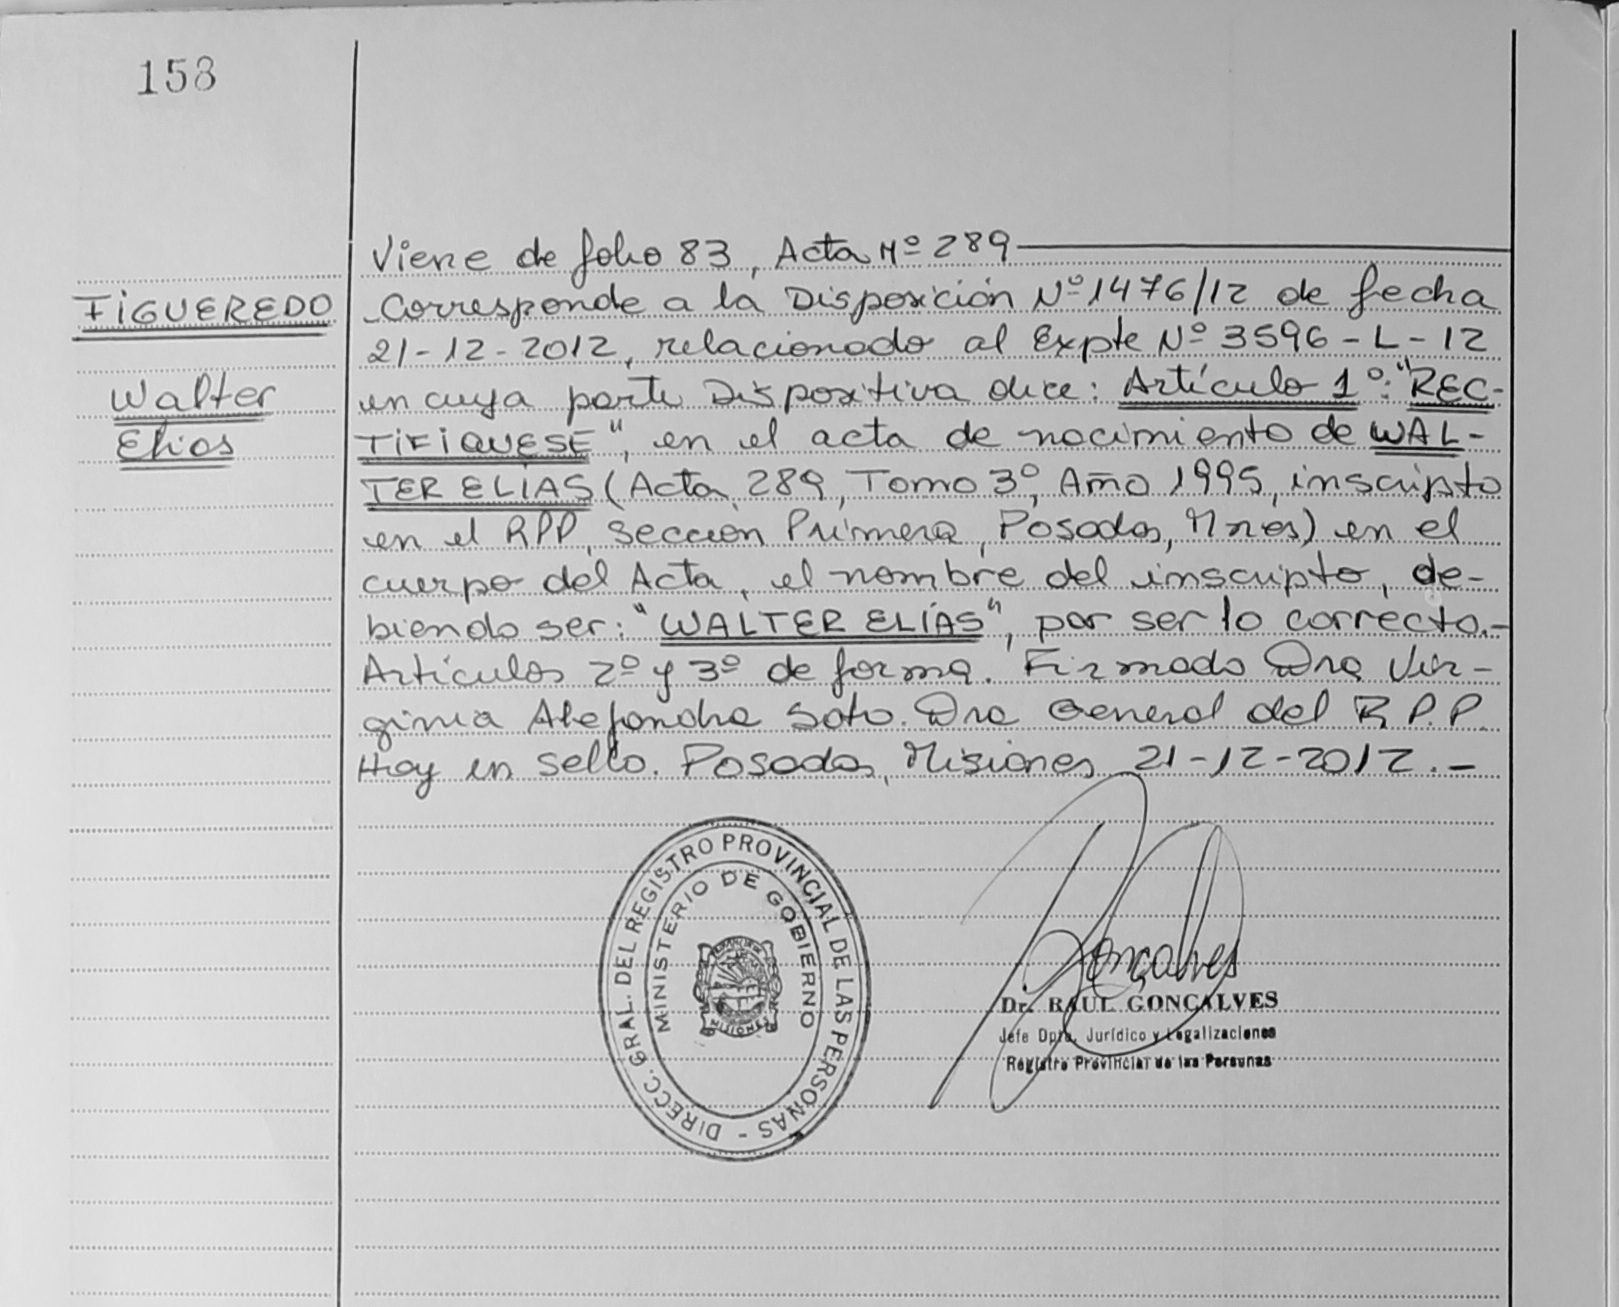 158
FIGUEREDO
Walter
Elías
Viene de folio 83, Acta Nº 289
Corresponde a la Disposición Nº 1476/12 de fecha
21-12-2012, relacionado al Expte Nº 3596-L-12
en cuya parte Dispositiva dice: Artículo 1º: "REC-
TIFIQUESE", en el acta de nacimiento de WAL-
TER ELIAS (Acta 289, Tomo 3º, Año 1995, inscripto
en el RPP, sección Primera, Posadas, Mnes) en el
cuerpo del Acta, el nombre del inscripto, de-
biendo ser: "WALTER ELÍAS", por ser lo correcto.-
Artículos 2º y 3º de forma. Firmado Dra Vir-
ginia Alejandra Soto. Dra General del R.P.P.
Hay un sello. Posadas, Misiones 21-12-2012.-
DIRECC. GRAL. DEL REGISTRO PROVINCIAL DE LAS PERSONAS -
MINISTERIO DE GOBIERNO
MISIONES
Gonçalves
Dr. RAUL GONÇALVES
Jefe Dpto. Jurídico y Legalizaciones
Registro Provincial de las Personas